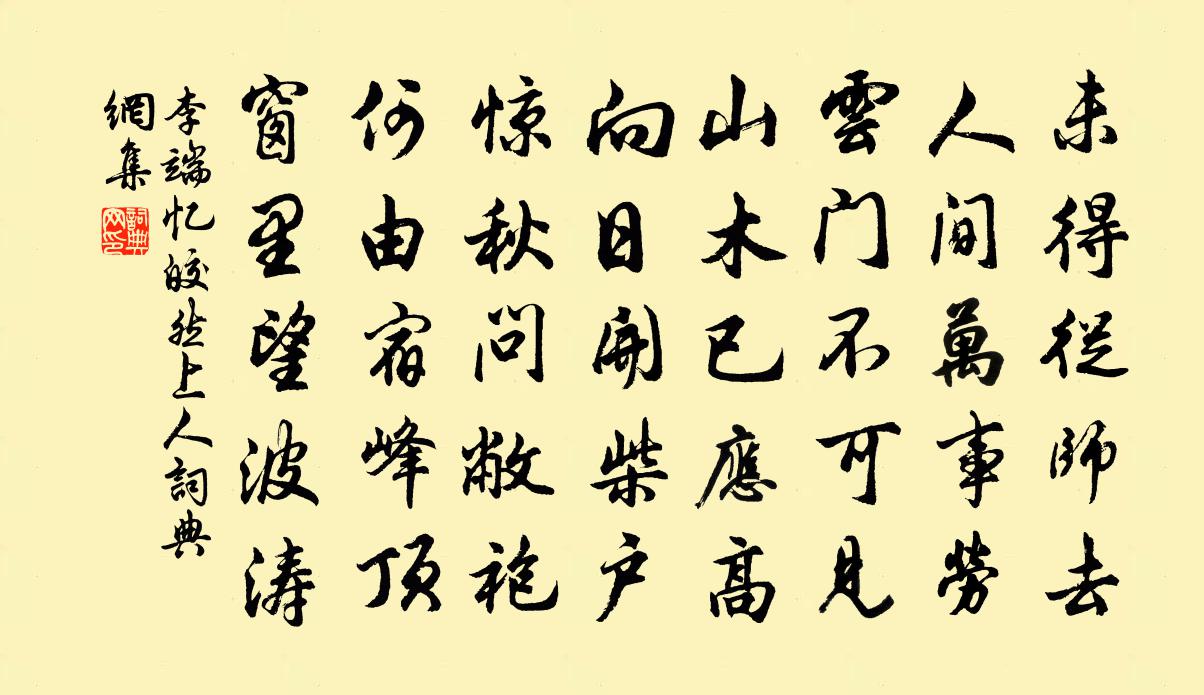 未得從師去
人间萬事勞
雲门不可見
山木已應高
向日開柴户
惊秋问敝袍
何由宿峰頂
窗里望波涛
李端忆皎然上人詞典
網集
詞典网印